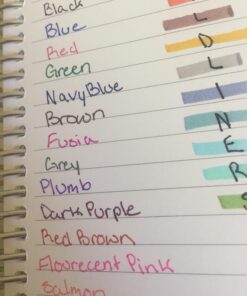 Black
Blue
Red
Green
NavyBlue
Brown
Fusia
Grey
Plumb
Dark Purple
Red Brown
Flourecent Pink
Salmon
L
D
L
I
N
E
R
S